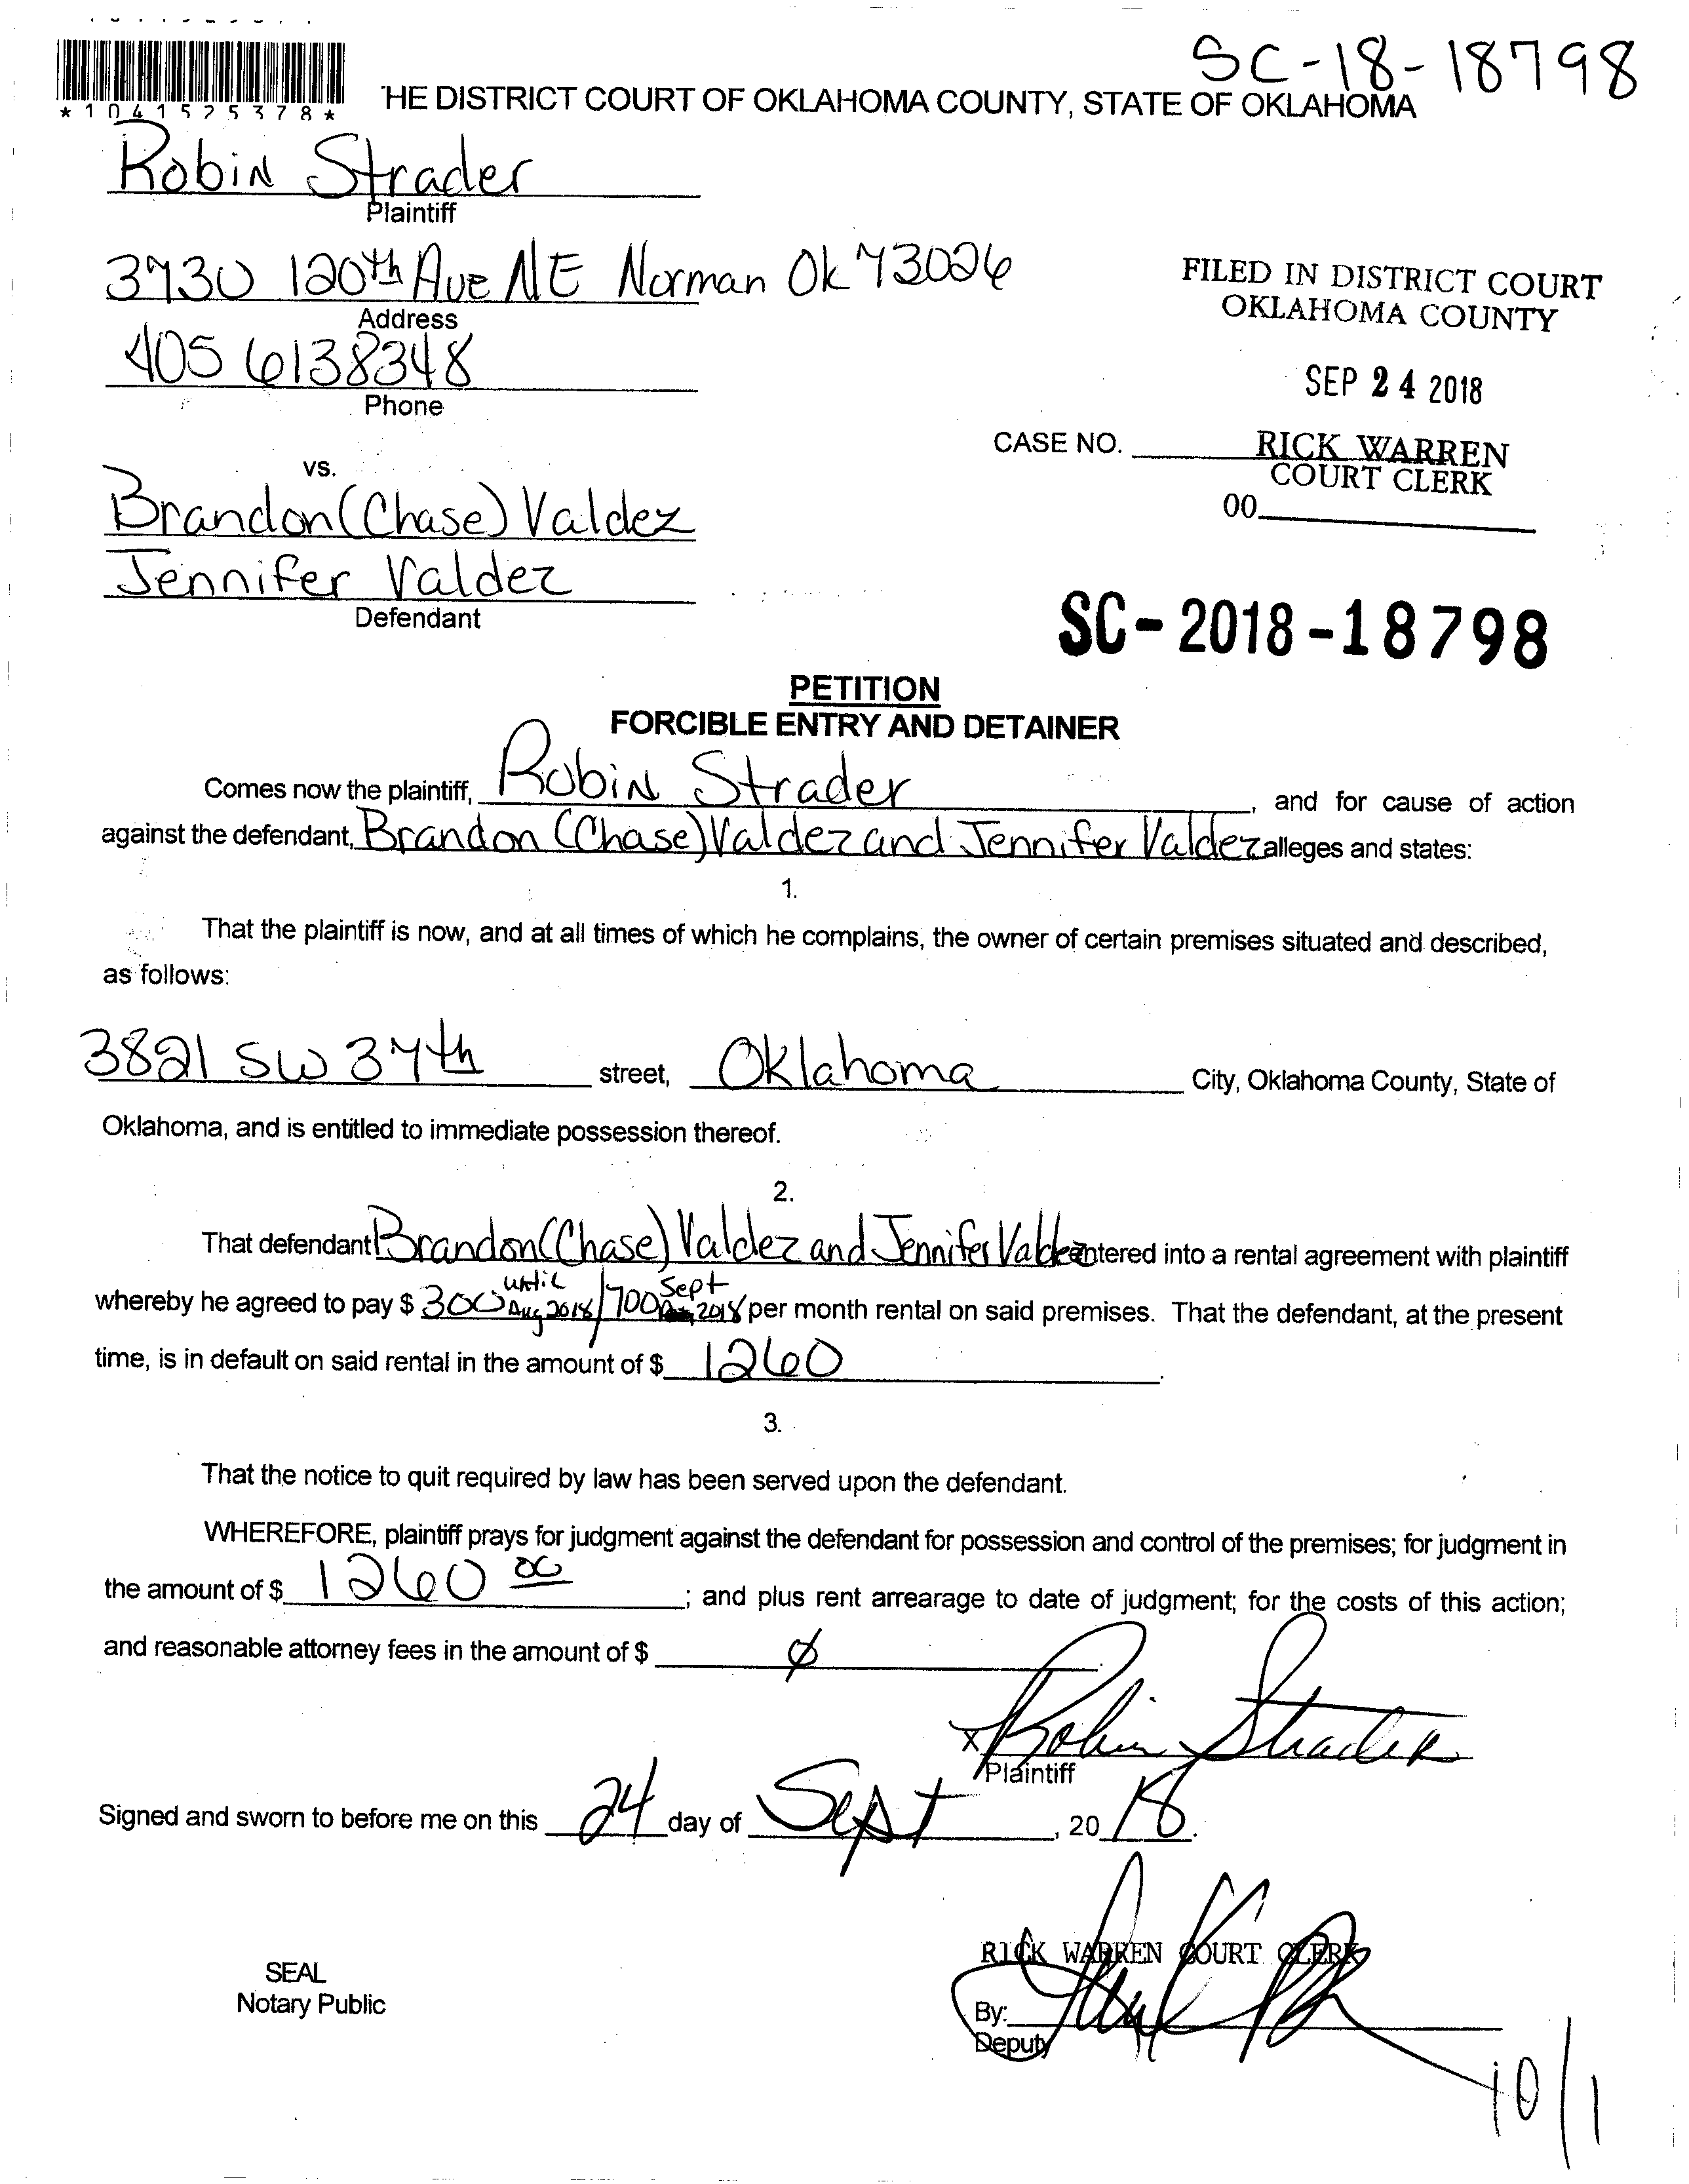 SC-18-18798
*1041525378*
THE DISTRICT COURT OF OKLAHOMA COUNTY, STATE OF OKLAHOMA
Robin Strader
Plaintiff
3730 120th Ave NE Norman Ok 73026
Address
405 6138348
Phone
FILED IN DISTRICT COURT
OKLAHOMA COUNTY
SEP 24 2018
RICK WARREN
COURT CLERK
CASE NO.
00
vs.
Brandon (Chase) Valdez
Jennifer Valdez
Defendant
SC-2018-18798
PETITION
FORCIBLE ENTRY AND DETAINER
Comes now the plaintiff, Robin Strader, and for cause of action
against the defendant, Brandon (Chase) Valdez and Jennifer Valdez alleges and states:
1.
That the plaintiff is now, and at all times of which he complains, the owner of certain premises situated and described,
as follows:
3821 SW 37th street, Oklahoma City, Oklahoma County, State of
Oklahoma, and is entitled to immediate possession thereof.
2.
That defendant Brandon (Chase) Valdez and Jennifer Valdez entered into a rental agreement with plaintiff
whereby he agreed to pay $ 300 until Aug 2018/700 Sept 2018 per month rental on said premises. That the defendant, at the present
time, is in default on said rental in the amount of $ 1260.
3.
That the notice to quit required by law has been served upon the defendant.
WHEREFORE, plaintiff prays for judgment against the defendant for possession and control of the premises; for judgment in
the amount of $ 1260 00; and plus rent arrearage to date of judgment; for the costs of this action;
and reasonable attorney fees in the amount of $ ∅.
X Robin Strader
Plaintiff
Signed and sworn to before me on this 24 day of Sept, 2018.
RICK WARREN COURT CLERK
SEAL
Notary Public
By:
Deputy
10/1